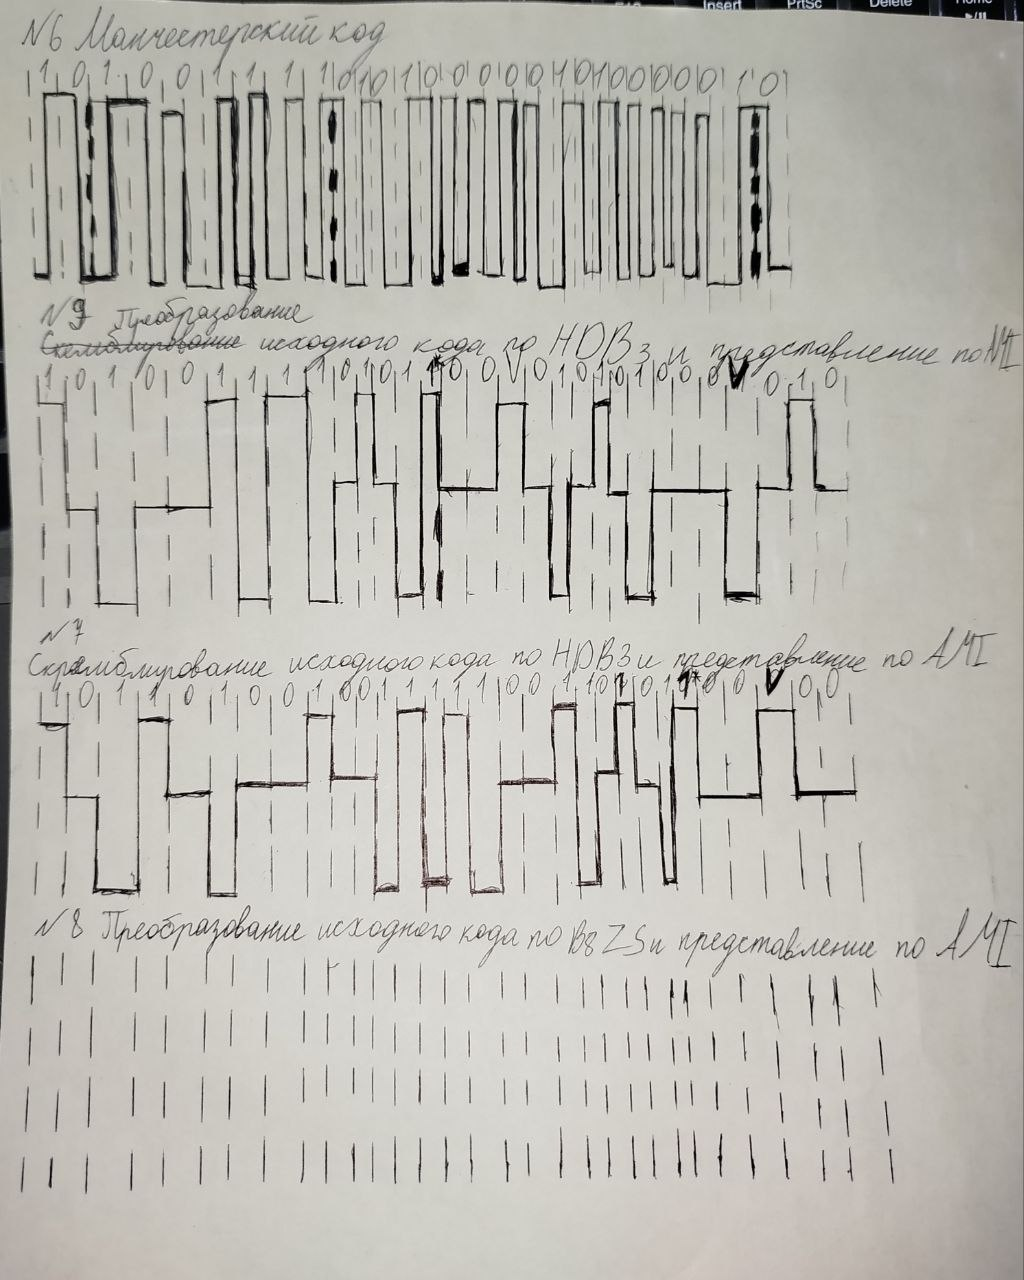 Insert PrtSc Delete Home
N6 Манчестерский код
1 0 1 0 0 1 1 1 1 0 1 0 1 0 0 0 0 0 1 0 1 0 0 0 0 0 1 0
N9 Преобразование
Скремблирование исходного кода по HDB3 и представление по AMI
1 0 1 0 0 1 1 1 1 0 1 0 1 1* 0 0 V 0 1 0 1 0 1 0 0 0 V 0 1 0
N7
Скремблирование исходного кода по HDB3 и представление по AMI
1 0 1 1 0 1 0 0 1 0 0 1 1 1 1 1 0 0 1 1 0 1 0 1 1* 0 0 V 0 0
N8 Преобразование исходного кода по B8ZS и представление по AMI